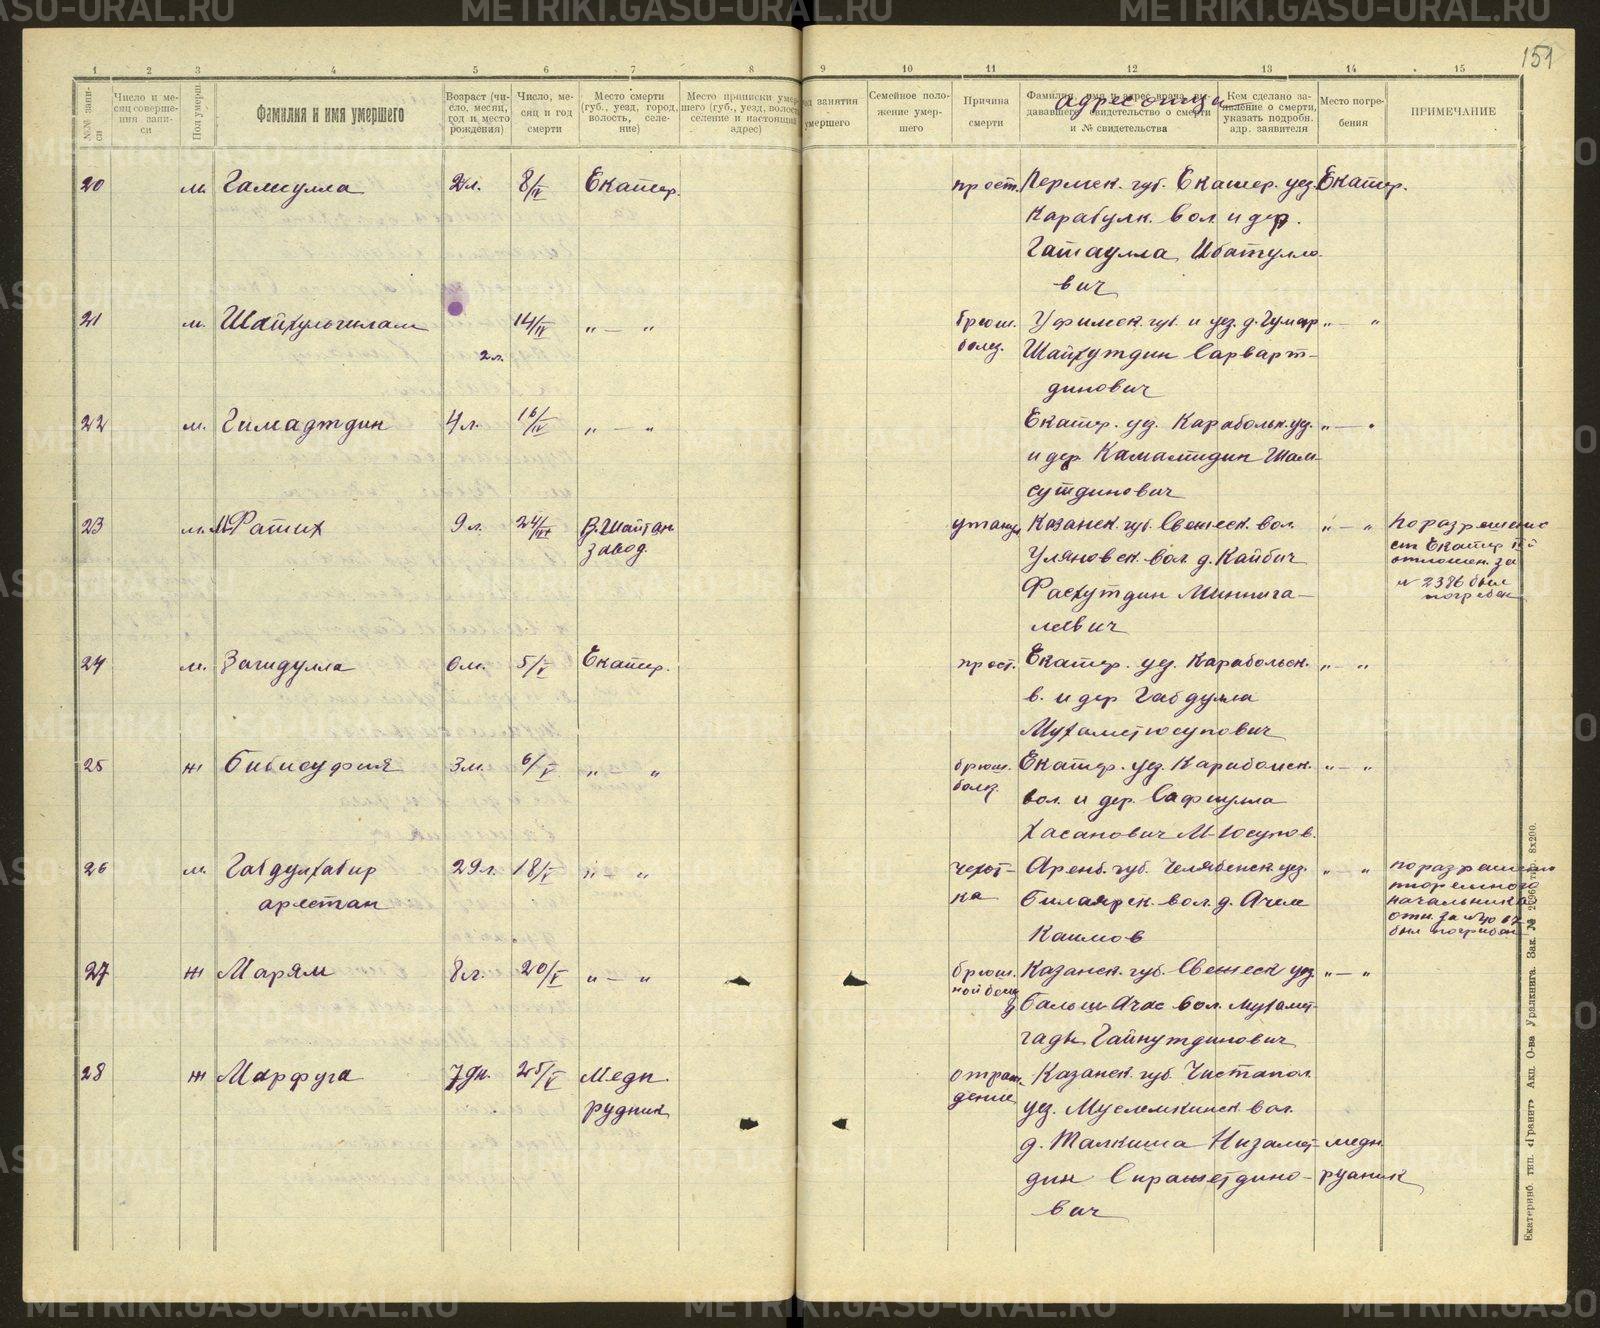 151
1 2 3 4 5 6 7 8 9 10 11 12 13 14 15
№№ запи-
си
Число и ме-
сяц соверше-
ния запи-
си
Пол умерш.
Фамилия и имя умершего
Возраст (чи-
сло, месяц,
год и место
рождения)
Число, ме-
сяц и год
смерти
Место смерти
(губ., уезд, город,
волость, селе-
ние)
Место приписки умер-
шего (губ., уезд, волост
селение и настоящий
адрес)
од занятия
умершего
Семейное поло-
жение умер-
шего
Причина
смерти
Фамилия, имя и адрес врача, вы-
дававшего свидетельство о смерти
и № свидетельства
адрес отца
Кем сделано за-
явление о смерти,
указать подробн.
адр. заявителя
Место погре-
бения
ПРИМЕЧАНИЕ
20 м. Галиулла 2л. 8/IV Екатер. прост. Пермск. губ. Екатер. уез. Екатер.
Карабулк. вол. и дер.
Гатаулла Ибатулло-
вич
21 м. Шайхульислам 2л. 14/IV „ — „ брюш. болез. Уфимск. губ. и уез. д. „ — „
Шайхутдин Сарварт-
динович
22 м. Гимадтдин 4л. 16/IV „ — „ Екатер. уез. Карабольк. „ — „
и дер. Камалтдин Шам-
сутдинович
23 м. Фатих 9л. 24/ В. Шайтан завод. Казанск. губ. Свияжск. вол. „ — „ по разрешению
Уляновск. вол. д. Кайбич
Фасхутдин Миннига-
леевич
отношен. за
№ 2386 был
погребен
24 м. Загидулла 0м. 5/V Екатер. прост. Екатер. уез. Карабольск. „ — „
в. и дер. Габдулла
Мухаметюсупович
25 ж Бибисуфия 3м. 6/V „ — „ брюш. болез. Екатер. уез. Карабольск. „ — „
вол. и дер. Сафиулла
Хасанович М-Юсупов.
26 м. Габдулхабир 29л. 18/V „ — „ чехот-
арестан ка Аренб. губ. Челябенск уез. „ — „ по разрешению
вол. д. Ачле
Каимов
тюремного
начальника
отн. за №
был погребен
27 ж Марям 8л. 20/V „ — „ брюш. ной болез Казанск. губ. Свежеск уез „ — „
Балыш-Ачас вол. Мухамет-
гады Гайнутдинович
28 ж Марфуга 7дн. 25/V Медн. рудник Казанск. губ. Чистапол.
уез. Муслемкинск вол.
д. Талкиша Низамет- медн.
дин Сиражетдино- рудник
вич
Екатеринб. тип. «Гранит» Акц. О-ва Уралкнига. Зак. № тир. 8х200.
METRIKI.GASO-URAL.RU